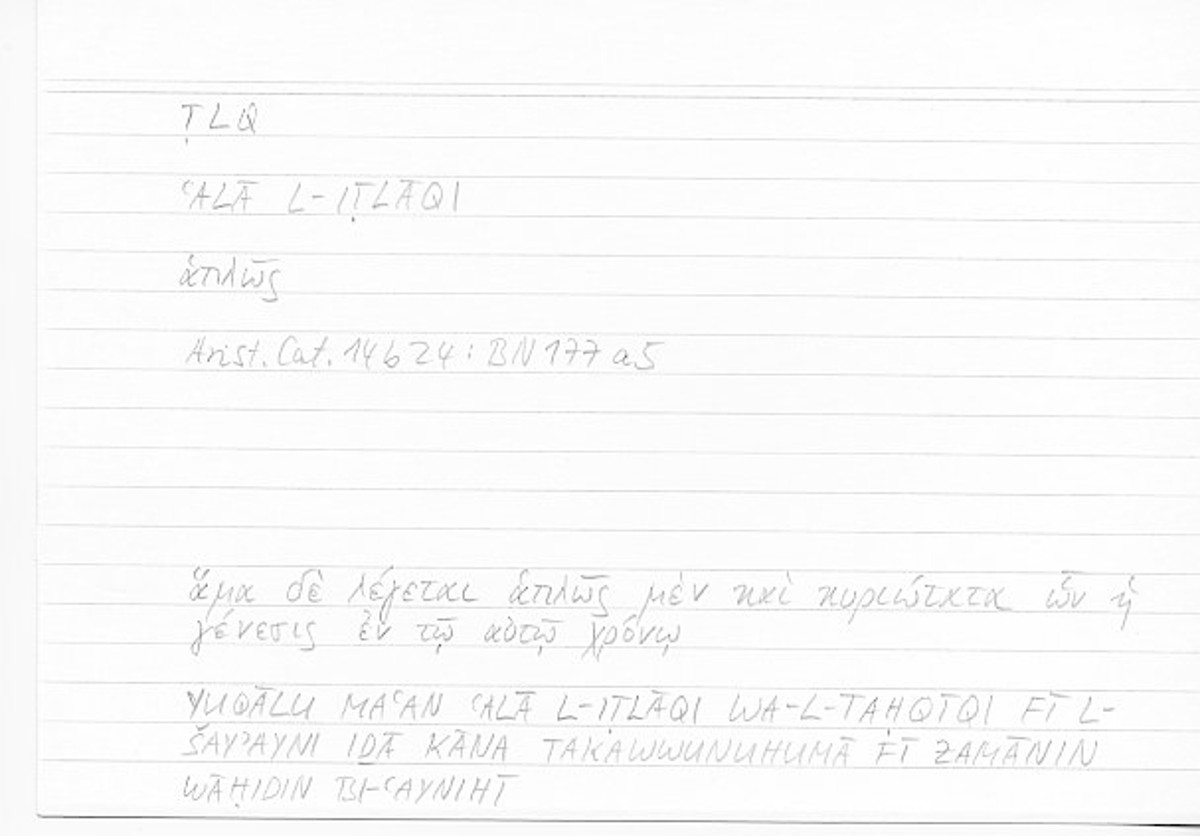 ṬLQ
ʿALĀ L-IṬLĀQI
ἁπλῶς
Arist. Cat. 14 b 24 : BN 177 a 5
ἅμα δὲ λέγεται ἁπλῶς μὲν καὶ κυριώτατα ὧν ἡ
γένεσις ἐν τῷ αὐτῷ χρόνῳ
YUQĀLU MAʿAN ʿALĀ L-IṬLĀQI WA-L-TAḤQĪQI FĪ L-
ŠAYʾAYNI IḎĀ KĀNA TAKAWWUNUHUMĀ FĪ ZAMĀNIN
WĀḤIDIN BI-ʿAYNIHĪ